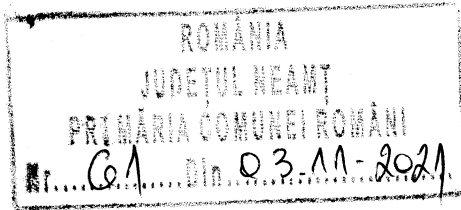 ROMÂNIA
JUDEȚUL NEAMȚ
PRIMĂRIA COMUNEI ROMÂNI
Nr.... 61 ....... Din.. 03.11-2021